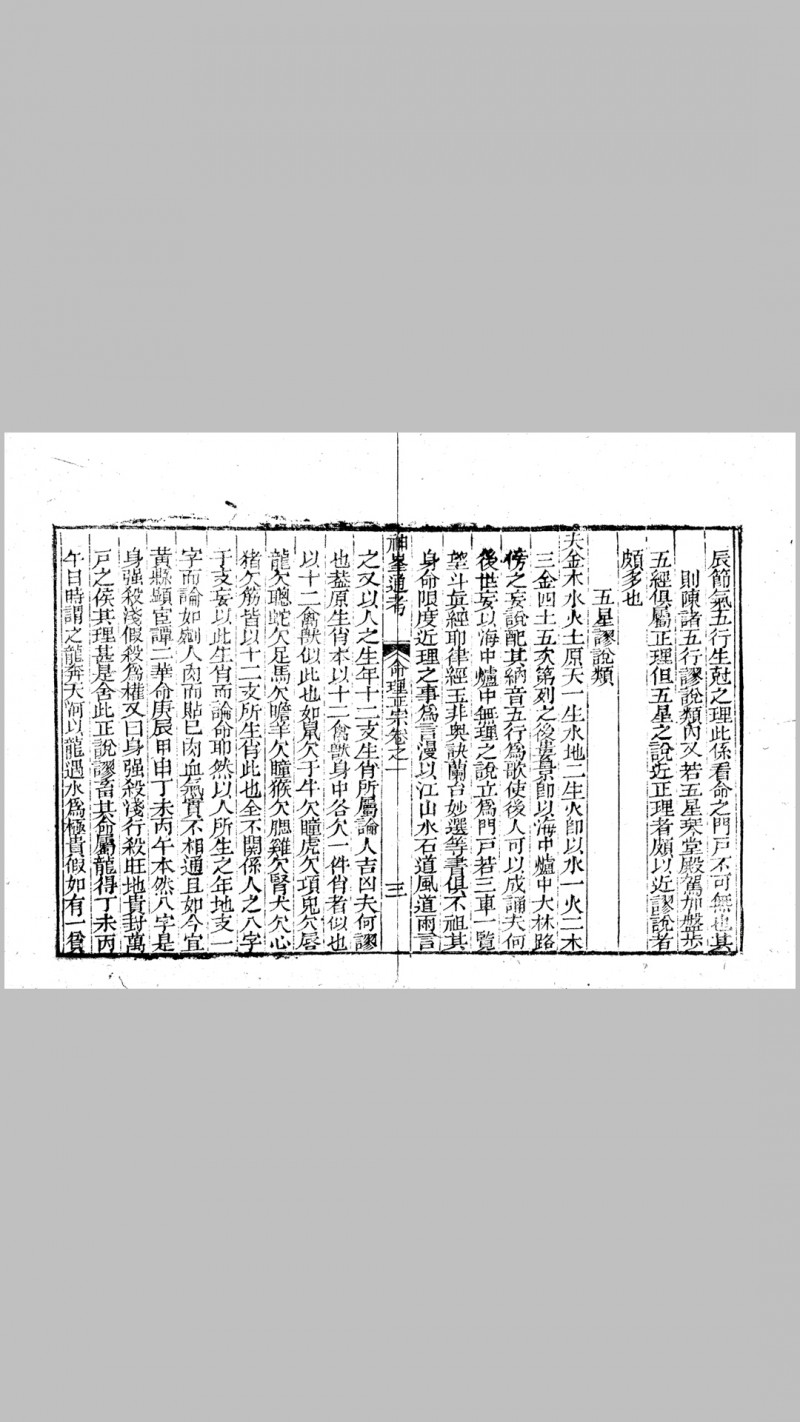 辰節氣五行生尅之理此係看命之門戸不可無也其
則陳諸五行謬說類內又若五星琹堂殿駕加盤步
五經俱屬正理但五星之說近正理者頗以近謬說者
頗多也
五星謬說類
夫金木水火土原天一生水地二生火即以水一火二木
三金四土五次第列之後書景即以海中爐中大林路
傍之妄說配其納音五行爲歌使後人可以成誦夫何
後世妄以海中爐中無理之說立爲門戸若三車一覽
望斗眞經耶律經玉非奧訣蘭台妙選等書俱不祖其
身命限度近理之事爲言漫以江山水石道風道雨言
神峯通考 命理正宗卷之一 三
之又以人之生年十二支生肖所屬論人吉凶夫何謬
也葢原生肖本以十二禽獸身中各欠一件肖者似也
以十二禽獸似此也如鼠欠于牛欠瞳虎欠項兎欠唇
龍欠聰蛇欠足馬欠膽羊欠瞳猴欠腮雞欠腎犬欠心
猪欠筋皆以十二支所生肖此也全不関係人之八字
于支妄以此生肖而論命耶然以人所生之年地支一
字而論如剜人肉而貼已肉血氣質不相通且如今宜
黃縣顯宦譚二華命庚辰甲申丁未丙午本然八字是
身强殺淺假殺爲權又曰身强殺淺行殺旺地貴封萬
戸之侯其理甚是舍此正說謬畜其命屬龍得丁未丙
午日時謂之龍奔天河以龍遇水爲極貴假如有一貧